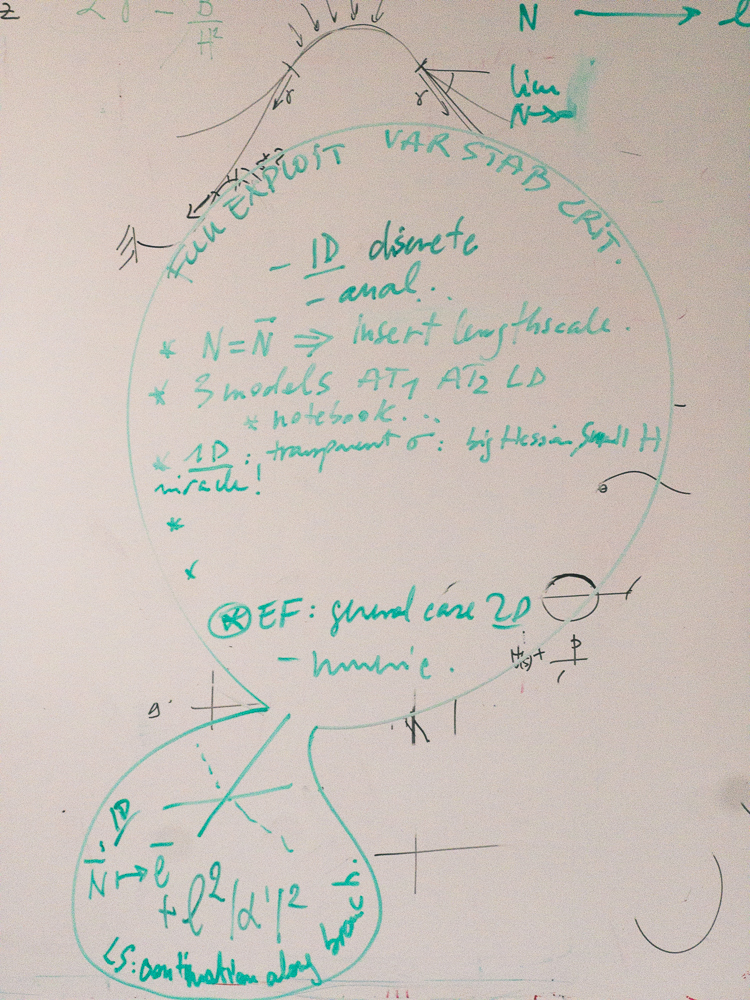 N → l
lim
N→∞
r r
FULL EXPLOIT VAR STAB CRIT.
- 1D discrete
- anal.
* N = N̄ ⇒ insert lengthscale.
* 3 models AT1 AT2 LD
* notebook...
* 1D: transparent σ: big Hessian, small H
miracle!
*
*
⊛ EF: general case 2D
- numeric.
1D
N̄ ↦ l̄
+ l²|α'|²
LS: continuation along branch.